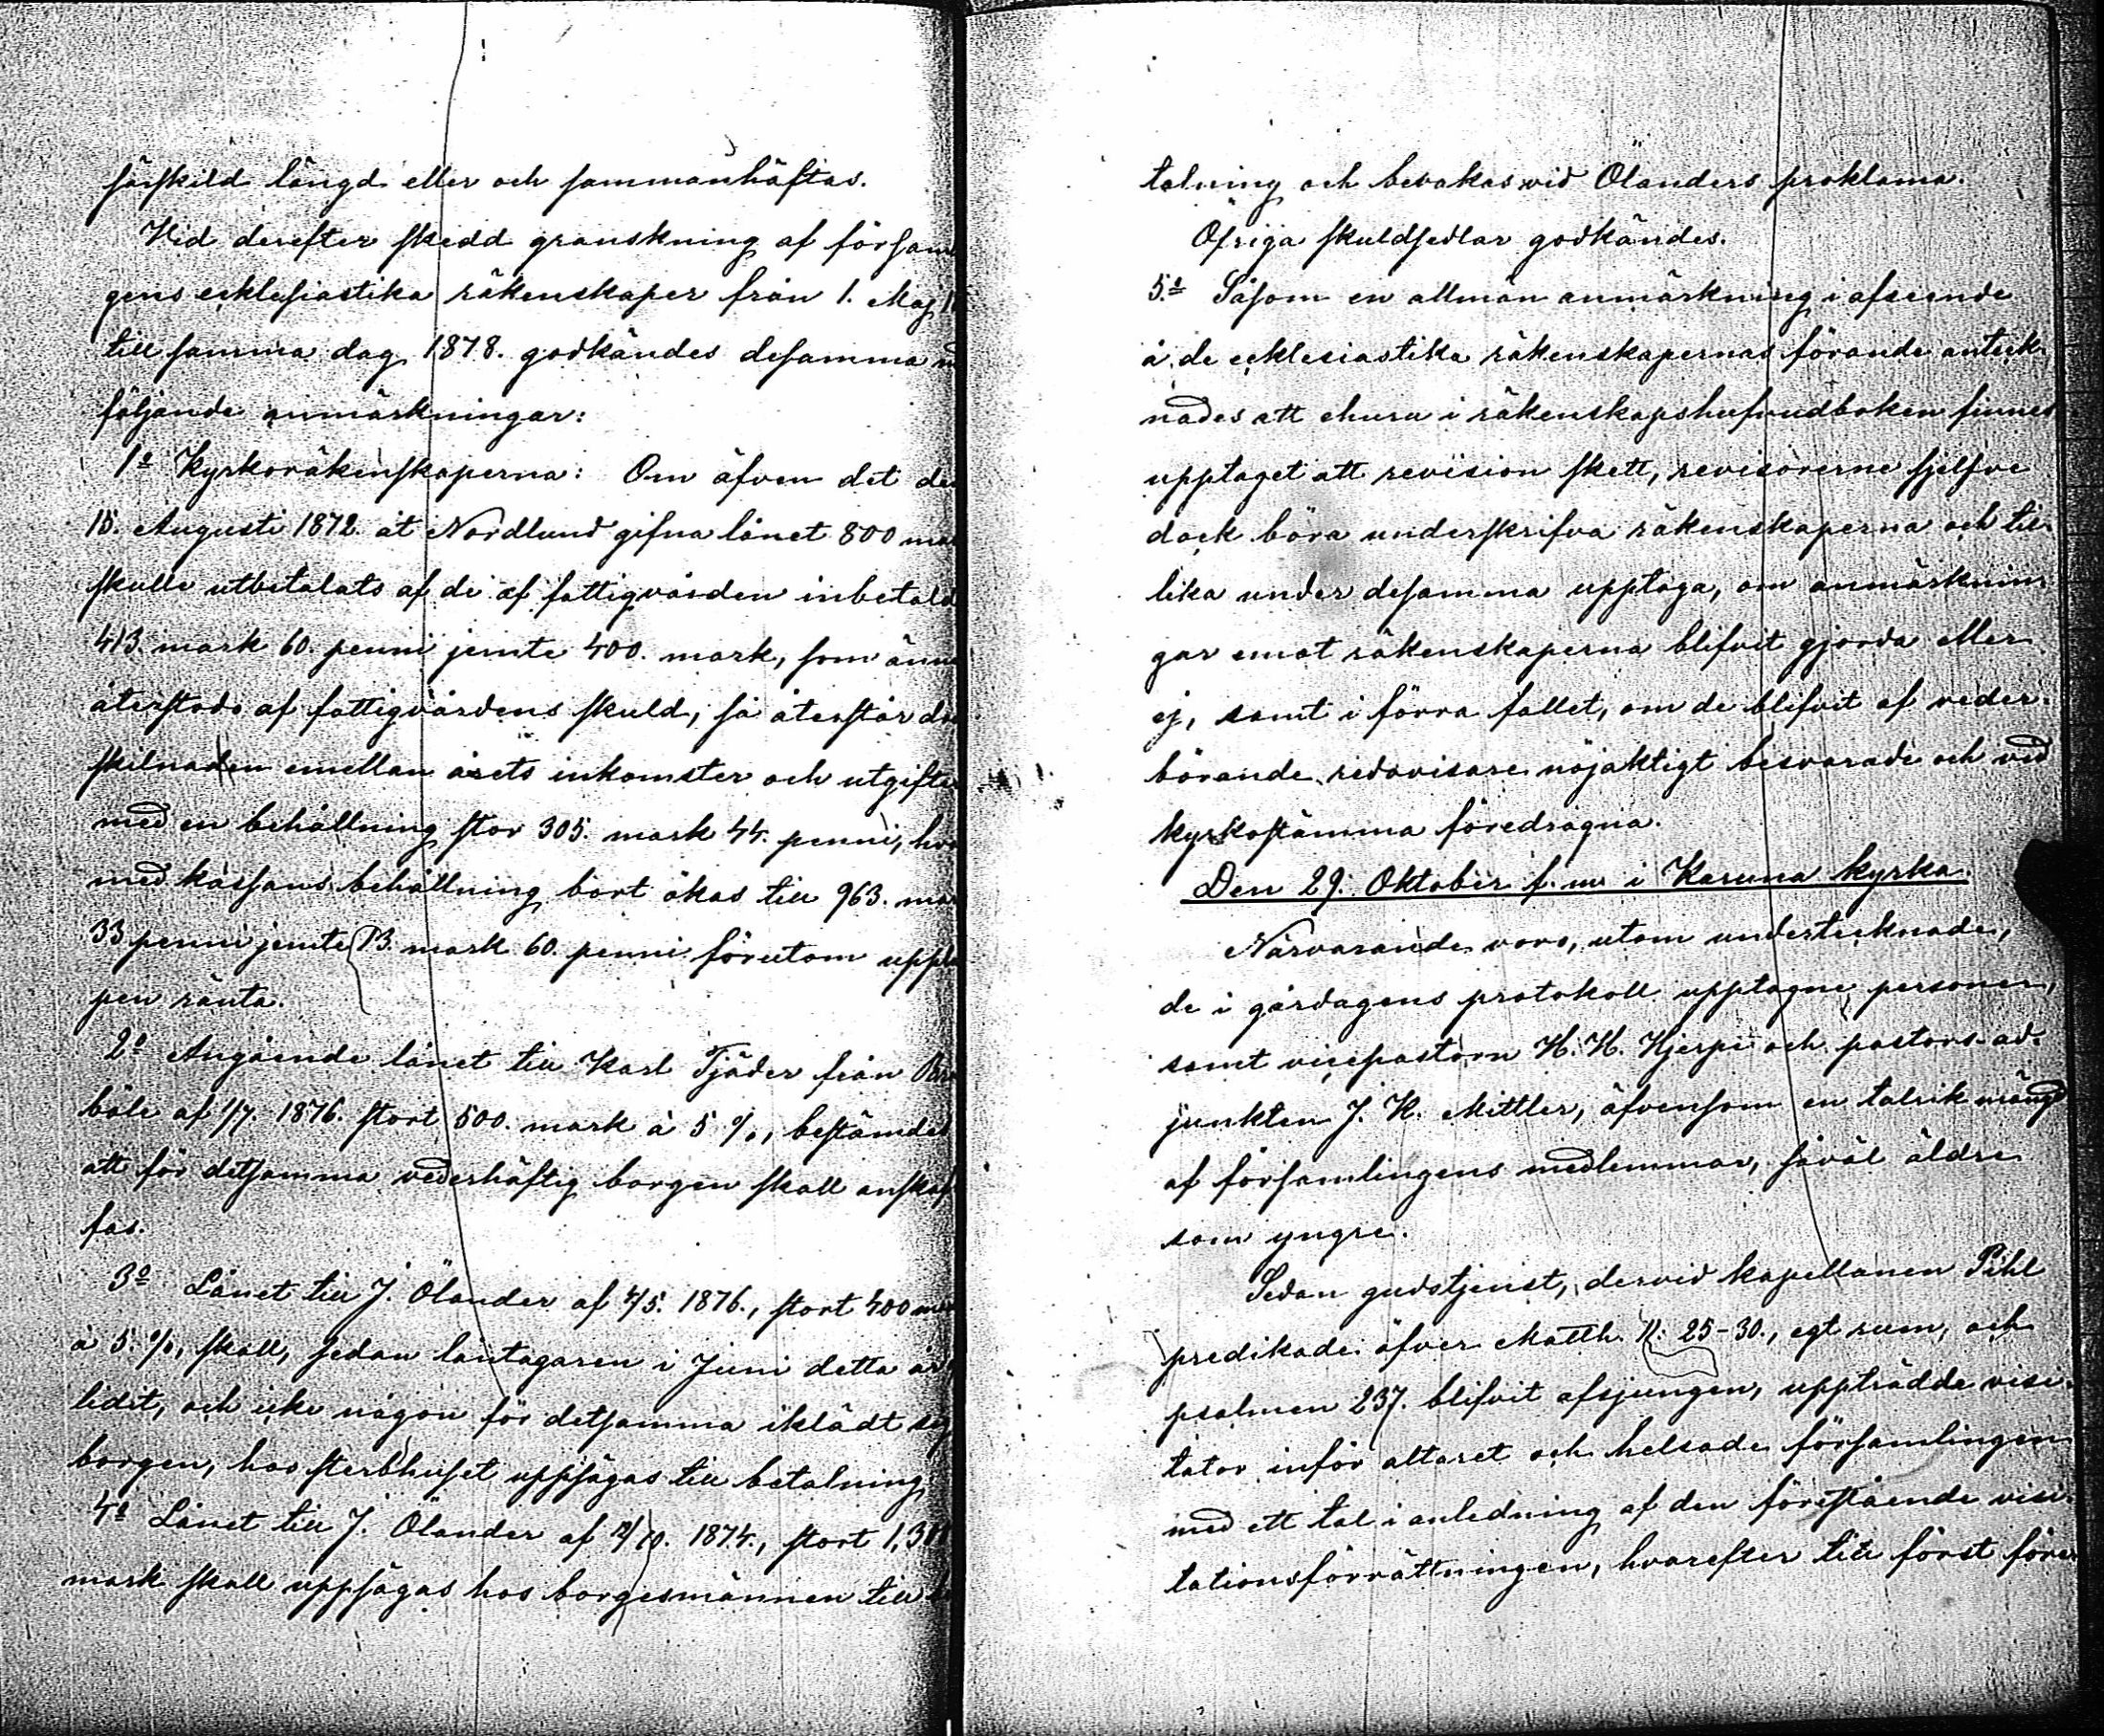 särskild längd eller och sammanhäftas.
Vid derefter skedd granskning af försam
gens ecklesiastika räkenskaper från 1. Maj
till samma dag 1878. godkändes desamma
följande anmärkningar:
1o Kyrkoräkenskaperna: Om äfven det
15. Augusti 1872. åt Nordlund gifna lånet 800
skulle utbetalats af de af fattigvården inbetald
413. mark 60. penni jemte 400. mark, som änn
återstodo af fattigvårdens skuld, så återstår
skilnaden emellan årets inkomster och utgifte
med en behållning stor 305. mark 44. penni,
med kassans behållning bort ökas till 963.
33 penni jemte 13. mark 60. penni förutom upplu
pen ränta.
2o Angående lånet till Karl Tjäder från
böle af 1/7. 1876. stort 500. mark à 5 %, bestämdes
att för detsamma vederhäftig borgen skall anskaf
fas.
3o Lånet till J. Ölander af 4/5. 1876., stort 400
à 5. %, skall, sedan låntagaren i Juni detta år
lidit, och icke någon för detsamma iklädt sig
borgen, hos sterbhuset uppsägas till betalning
4o Lånet till J. Ölander af 12/10. 1874., stort
mark skall uppsägas hos borgesmännen till
talning och bevakas vid Ölanders proklama.
Öfriga skuldsedlar godkändes.
5.o Såsom en allmän anmärkning i afseende
å de ecklesiastika räkenskapernas förande anteck-
nades att ehuru i räkenskapshufvudboken finnes
upptaget att revision skett, revisorerne sjelfve
dock böra underskrifva räkenskaperna och till-
lika under desamma upptaga, om anmärknin-
gar emot räkenskaperna blifvit gjorda eller
ej, samt i förra fallet, om de blifvit af veder-
börande redovisare nöjaktigt besvarade och vid
kyrkostämma föredragna.
Den 29. Oktober f. m. i Karuna kyrka.
Närvarande voro, utom undertecknade,
de i gårdagens protokoll upptagne personer,
samt vicepastorn H. H. Hjerpe och pastors-ad-
junkten J. K. Mittler, äfvensom en talrik mängd
af församlingens medlemmar, såväl äldre
som yngre.
Sedan gudstjenst, dervid kapellanen Pihl
predikade öfver Matth. 11: 25-30., egt rum, och
psalmen 237. blifvit afsjungen, uppträdde visi-
tator inför altaret och helsade församlingen
med ett tal i anledning af den förestående visi-
tationsförrättningen, hvarefter till först före-